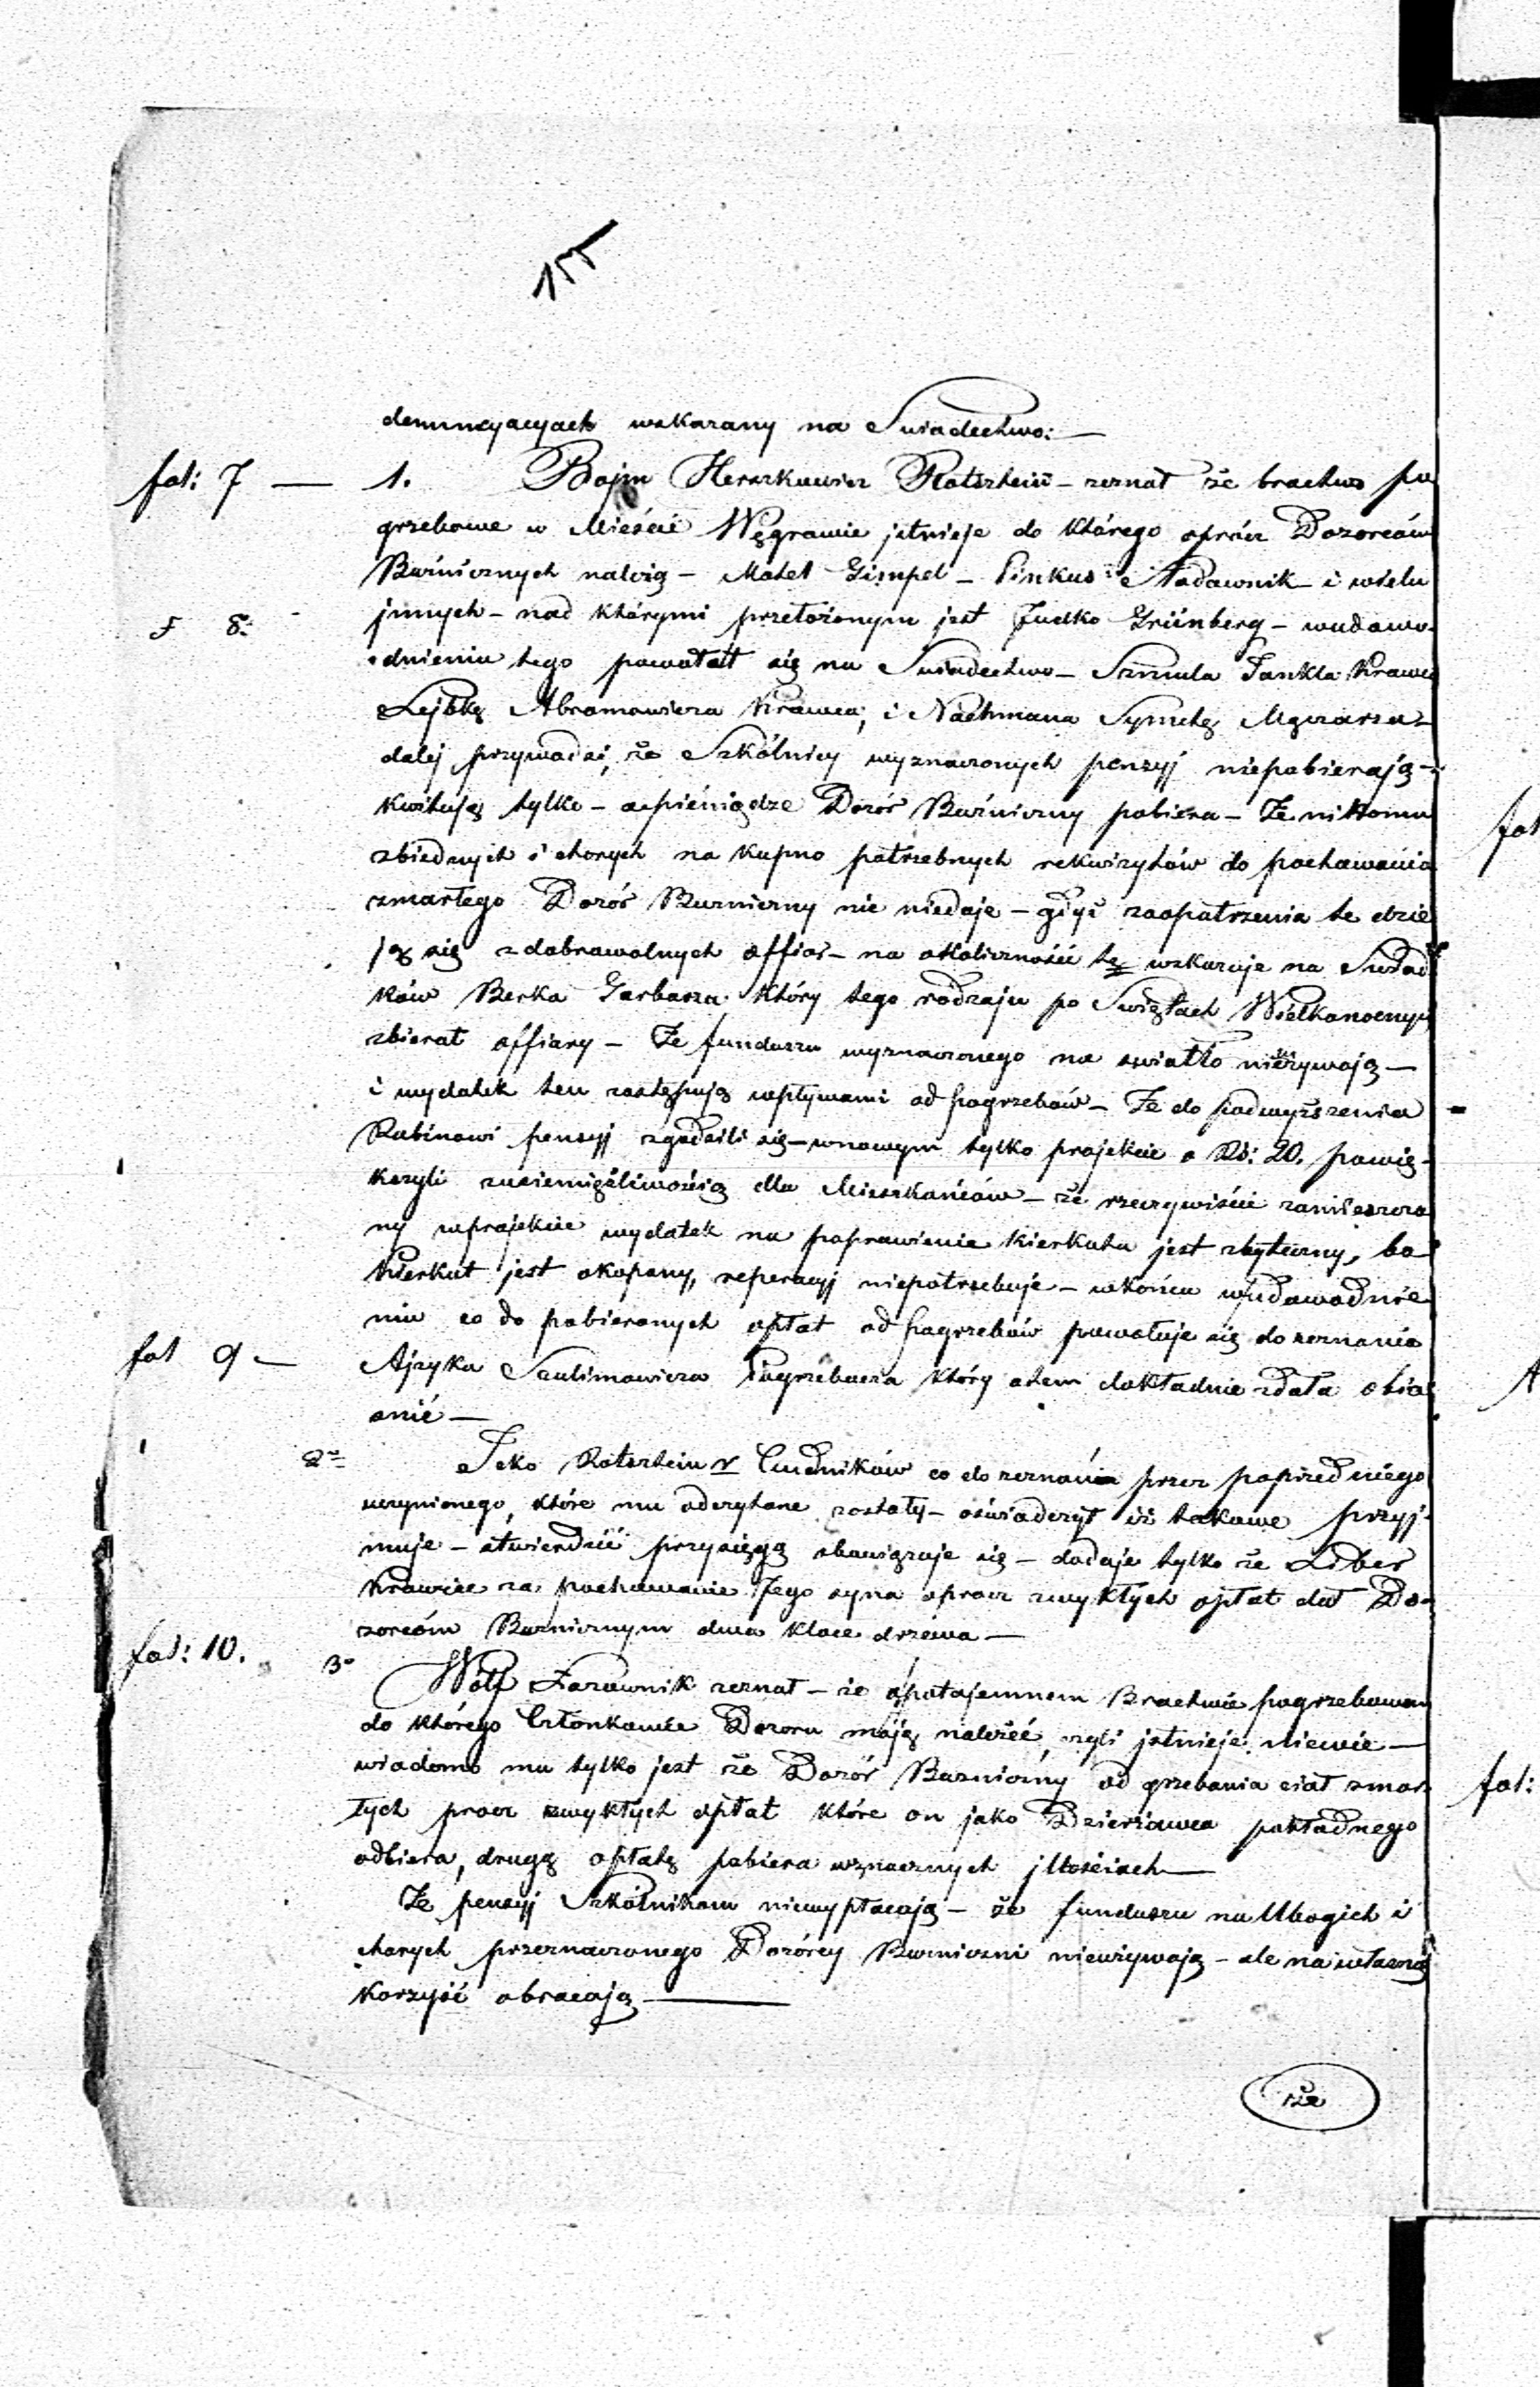 155
denuncyacyach wskazany na Świadectwo:—
fol: 7 — 1. Bojm Herszkowicz Rotsztein – zeznał że bractwo po
grzebowe w Mieście Węgrowie jstnieje do którego oprócz Dozorców
Bużnicznych należą – Motel Gimpel – Pinkus Stodawnik – i wielu
f 8: jnnych – nad którymi przełożonym jest Judko Grünberg – wudowo-
dnieniu tego powołałł się na Świadectwo – Szmula Jankla Krawca
Lejbkę Abramowicza Krawca, i Nachmana Symchę Mączarza –
dalej przywodzi, że Szkólnicy wyznaczonych pensyj niepobierają –
kwitują tylko – a pieniądze Dozór Bużniczny pobiera – Ze nikomu
zbiednych i chorych na kupno potrzebnych rekwizytów do pochowania
zmarłego Dozór Bużniczny nic niedaje – gdyż zaopatrzenia te dzie
ją się z dobrowolnych offiar – na okoliczność tę wskazuje na Świad
ków Berka Garbarza który tego rodzaju po Świętach Wielkanocnych
zbierał offiary – Ze funduszu wyznaczonego na światło nieużywają —
i wydatek ten zastępują wpływami od pogrzebów – Ze do podwyższenia
Rabinowi pensyj zgodzili się – wnowym tylko projekcie o Rs: 20. powię-
kszyli zuciemiężliwością dla Mieszkańców – że rzeczywiście zamieszczo
ny wprojekcie wydatek na poprawienie kierkutu jest zbyteczny, bo
Kierkut jest okopany, reperacyj niepotrzebuje – wkońcu wudowodnie
niu co do pobieranych opłat od pogrzebów powołuje się do zeznania
fol 9 — Ajzyka Szulimowicza Pogrzebacza który otem dokładnie zdoła obia
śnić —
2º Icko Rotsztein v Cudników co do zeznania przez poprzedniego
uczynionego, które mu odczytane zostały – oświadczył iż takowe przyj-
muje – stwierdzić przysięgą obowiązuje się – dodaje tylko że Liber
Krawiec za pochowanie Jego syna oprócz zwykłych opłat dał Do-
zorcóm Bużnicznym dwa kloce drzewa —
fol: 10. 3º Wolf Farownik zeznał – że o potajemnem Bractwie pogrzebowem
do którego Członkowie Dozoru mają należeć czyli jstnieje niewie —
wiadomo mu tylko jest że Dozór Bużniczny od grzebania ciał zmar
łych prócz zwykłych opłat które on jako Dzierżawca pokładnego
odbiera, drugą opłatę pobiera wznacznych jlościach —
Ze pensyj Szkólnikom niewypłacają – że funduszu na Ubogich i
chorych przeznaczonego Dozórcy Bużniczni nieużywają – ale na własną
korzyść obracają —
że
fol
A
fol: